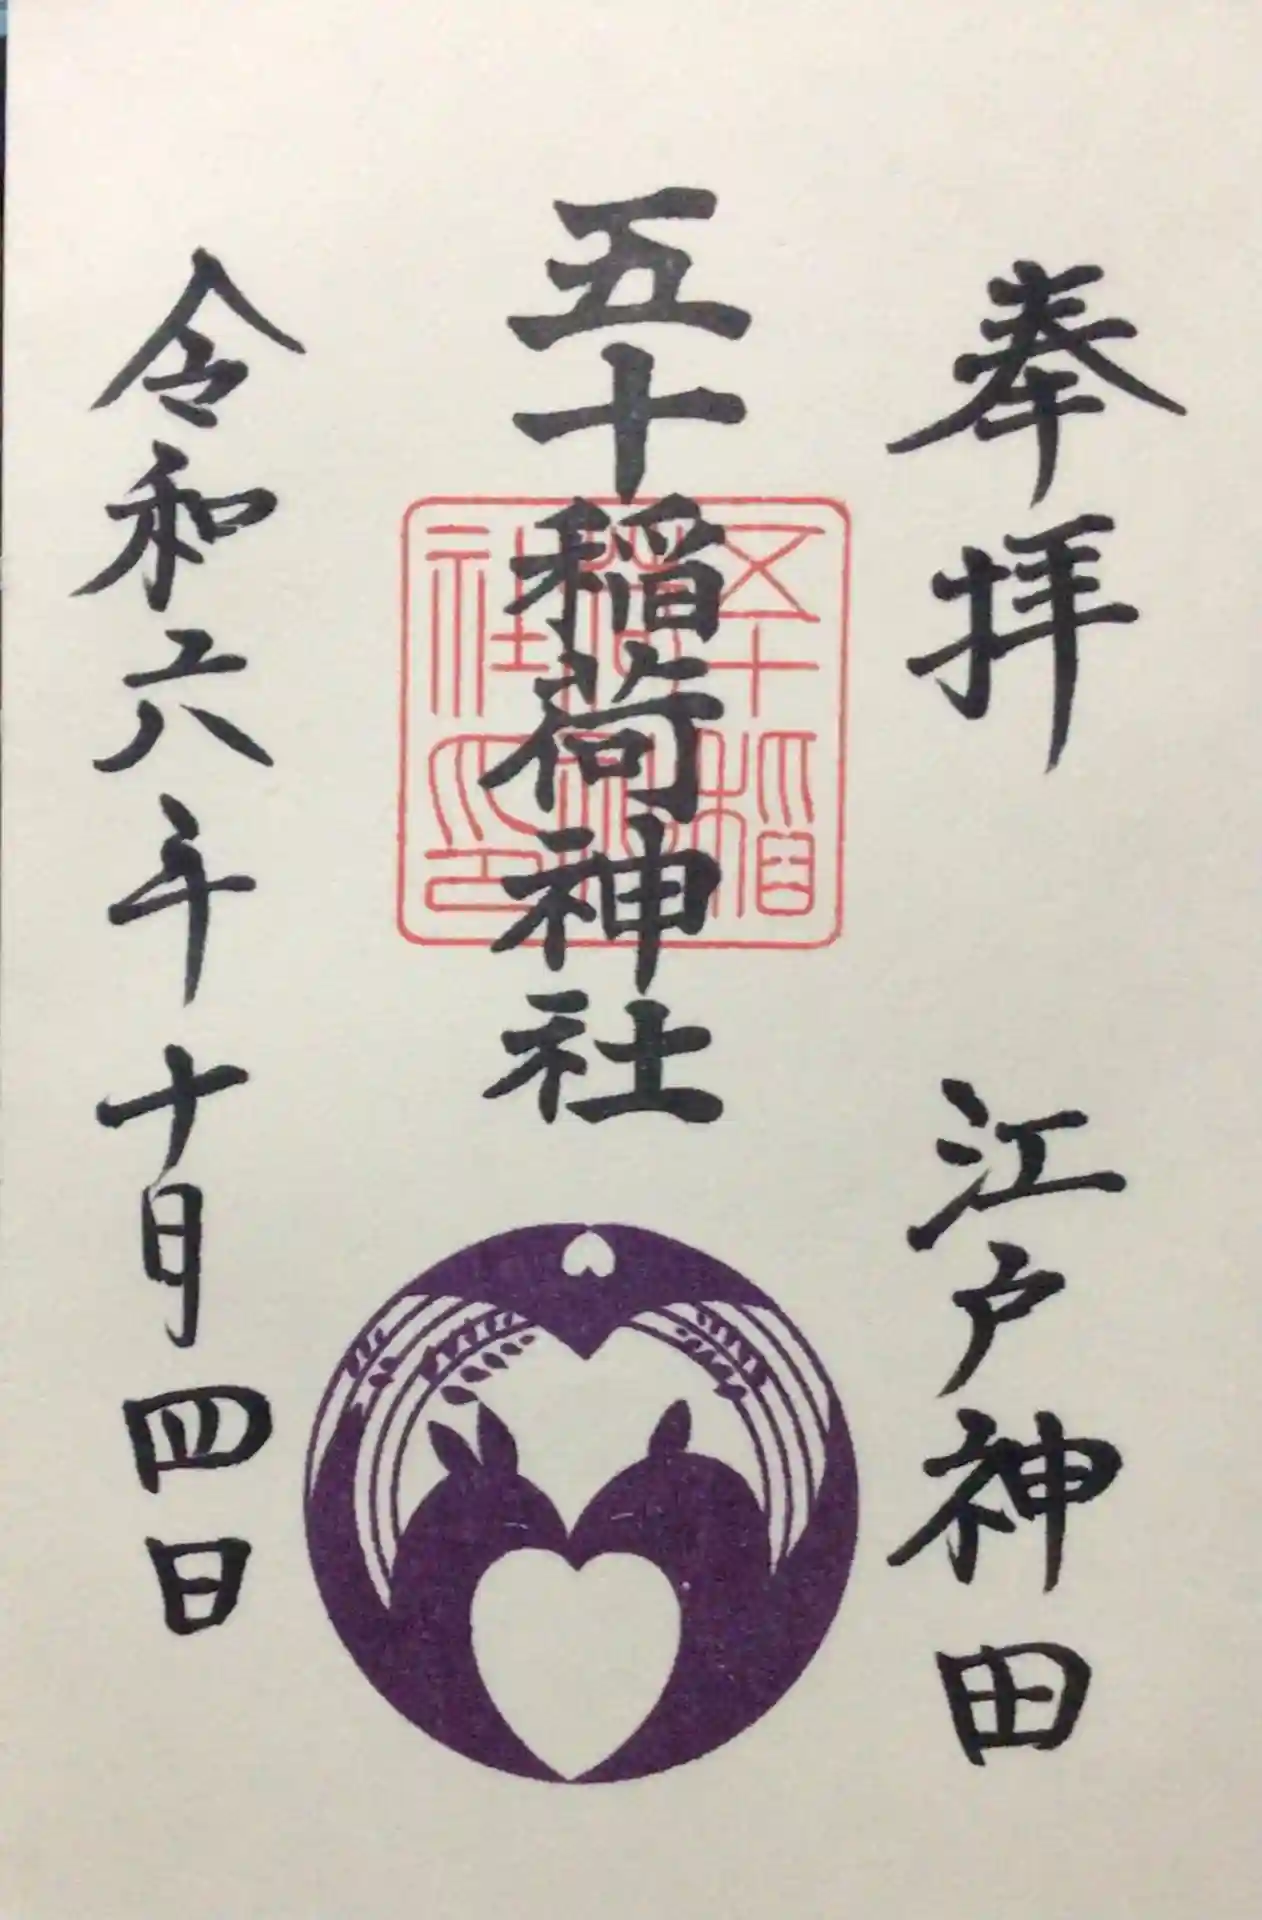 奉拝 江戸神田
五十稲荷神社
五十稲
荷神
社之印
令和六年十月四日